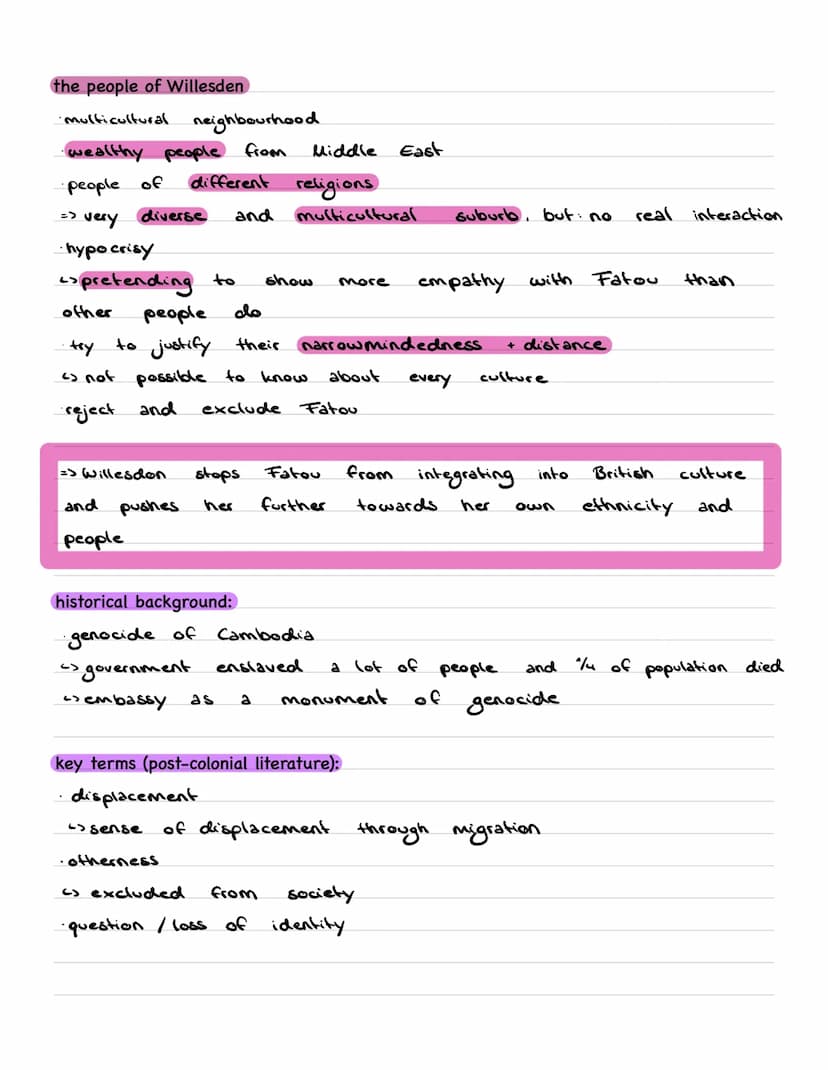 the people of Willesden
·multicultural neighbourhood
·wealthy people from Middle East
·people of different religions
=> very diverse and multicultural suburb, but: no real interaction
·hypocrisy
↳pretending to show more empathy with Fatou than
other people do
·try to justify their narrowmindedness + distance
↳ not possible to know about every culture
·reject and exclude Fatou
=> Willesdon stops Fatou from integrating into British culture
and pushes her further towards her own ethnicity and
people
historical background:
·genocide of Cambodia
↳government enslaved a lot of people and 1/4 of population died
↳embassy as a monument of genocide
key terms (post-colonial literature):
· displacement
↳sense of displacement through migration
·otherness
↳ excluded from society
·question / loss of identity